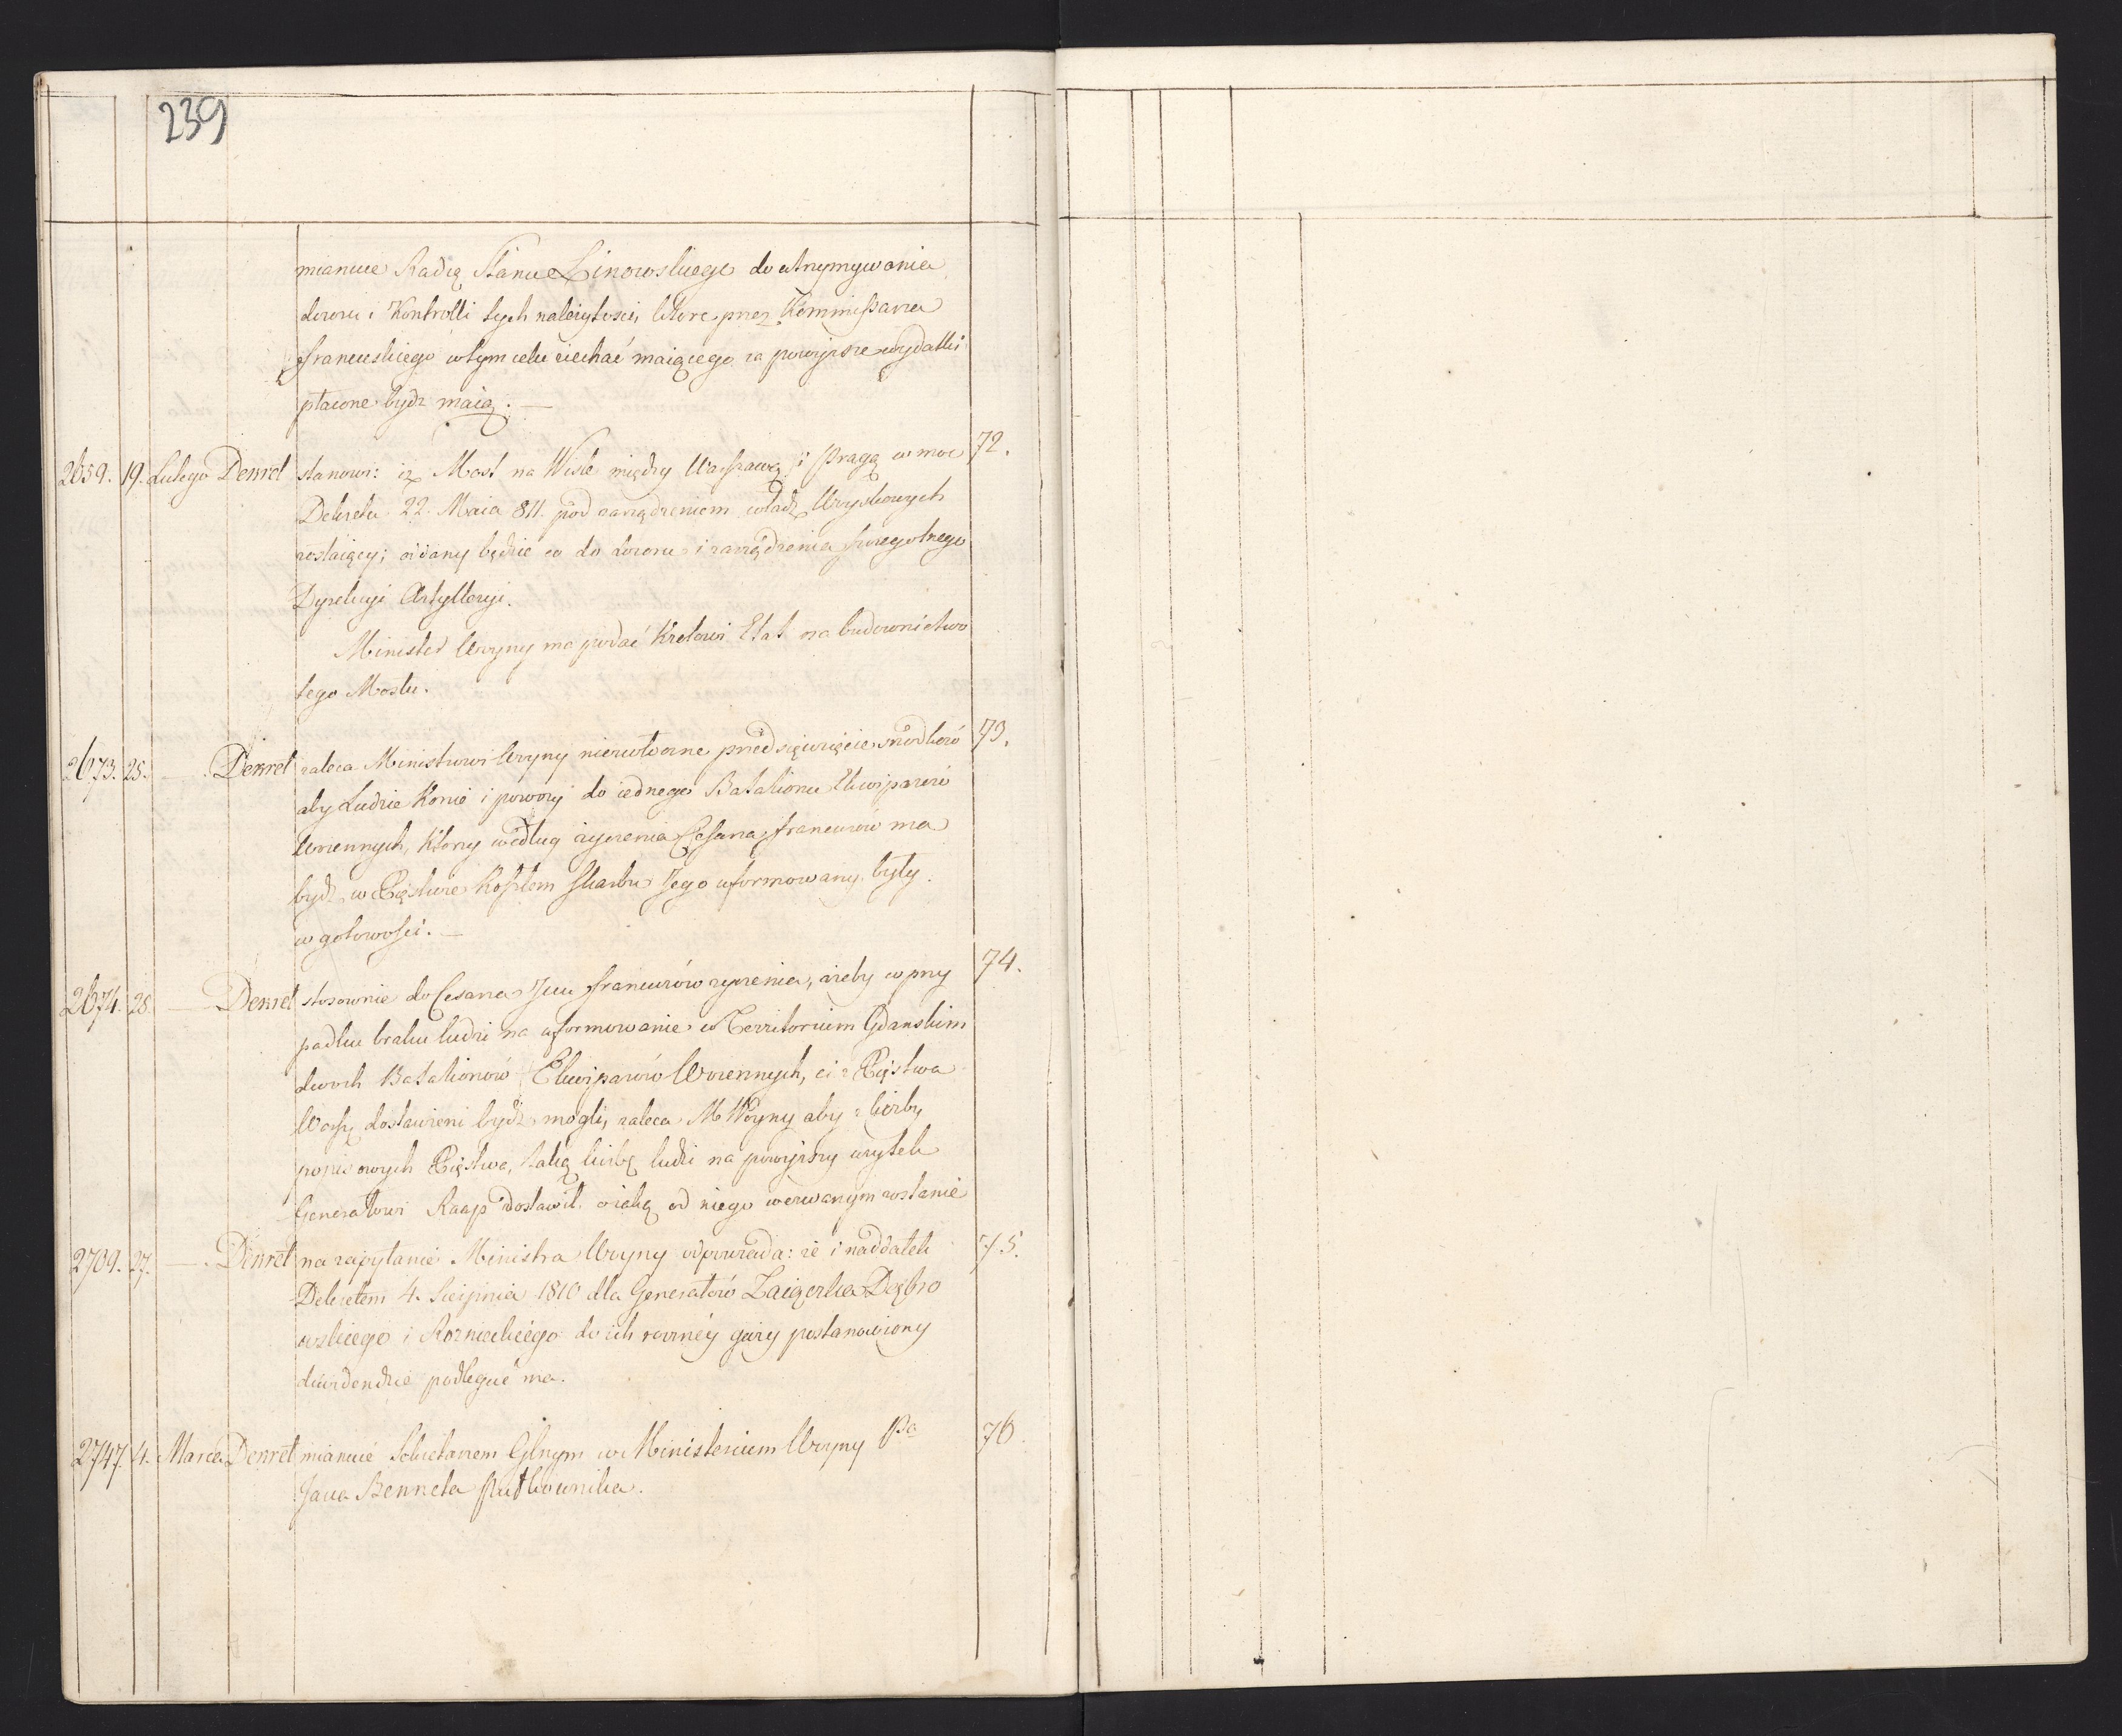 239
mianuie Radcę Stanu Linowskiego do utrzymywania
dozoru i Kontrolli tych należytości, które przez Kommissarza
francuskiego w tym celu ziechać maiącego za powyższe wydatki
płacone bydź maią. —
2659. 19. Lutego Dekret stanowi: iż Most na Wiśle między Warszawą i Pragą w moc 72.
Dekretu 22. Maia 811. pod zarządzeniem władz Woyskowych
zostaiący; oddany będzie co do dozoru i zarządzenia szczegolnego
Dyrekcyi Artylleryi.
Minister Woyny ma podać Krolowi Etat na budownictwo
tego Mostu.
2673. 25. — Dekret zaleca Ministrowi Woyny niezwłoczne przedsięwzięcie srzodków 73.
aby Ludzie Konie i powozy do iednego Batalionu Ekwipazów
Woiennych, Ktory według życzenia Cesarza francuzów ma
bydź w Xięstwie Kosztem Skarbu Jego uformowany, były
w gotowości. —
2674. 28. — Dekret stosownie do Cesarza Jmci francuzów życzenia, ażeby w przy 74.
padku braku ludzi na uformowanie w Territorium Gdanskim
dwoch Batalionów Ekwipazów Woiennych, ci z Xięstwa
Warsz dostawieni bydź mogli, zaleca M Woyny aby z liczby
popisowych Xięstwa, taką liczbę ludzi na powyższy użytek
Generałowi Raap dostawił, o iaką od niego wezwanym zostanie
2709. 27. — Dekret na zapytanie Ministra Woyny odpowiada: że i naddatek 75.
Dekretem 4. Sierpnia 1810 dla Generałów Zaiączka Dąbro
wskiego i Roznieckiego do ich roczney gaży postanowiony
dwidendzie podlegać ma.
2747. 4. Marca Dekret mianuie Sekretarzem Głnym w Ministerium Woyny Pa 76.
Jana Benneta Pułkownika.